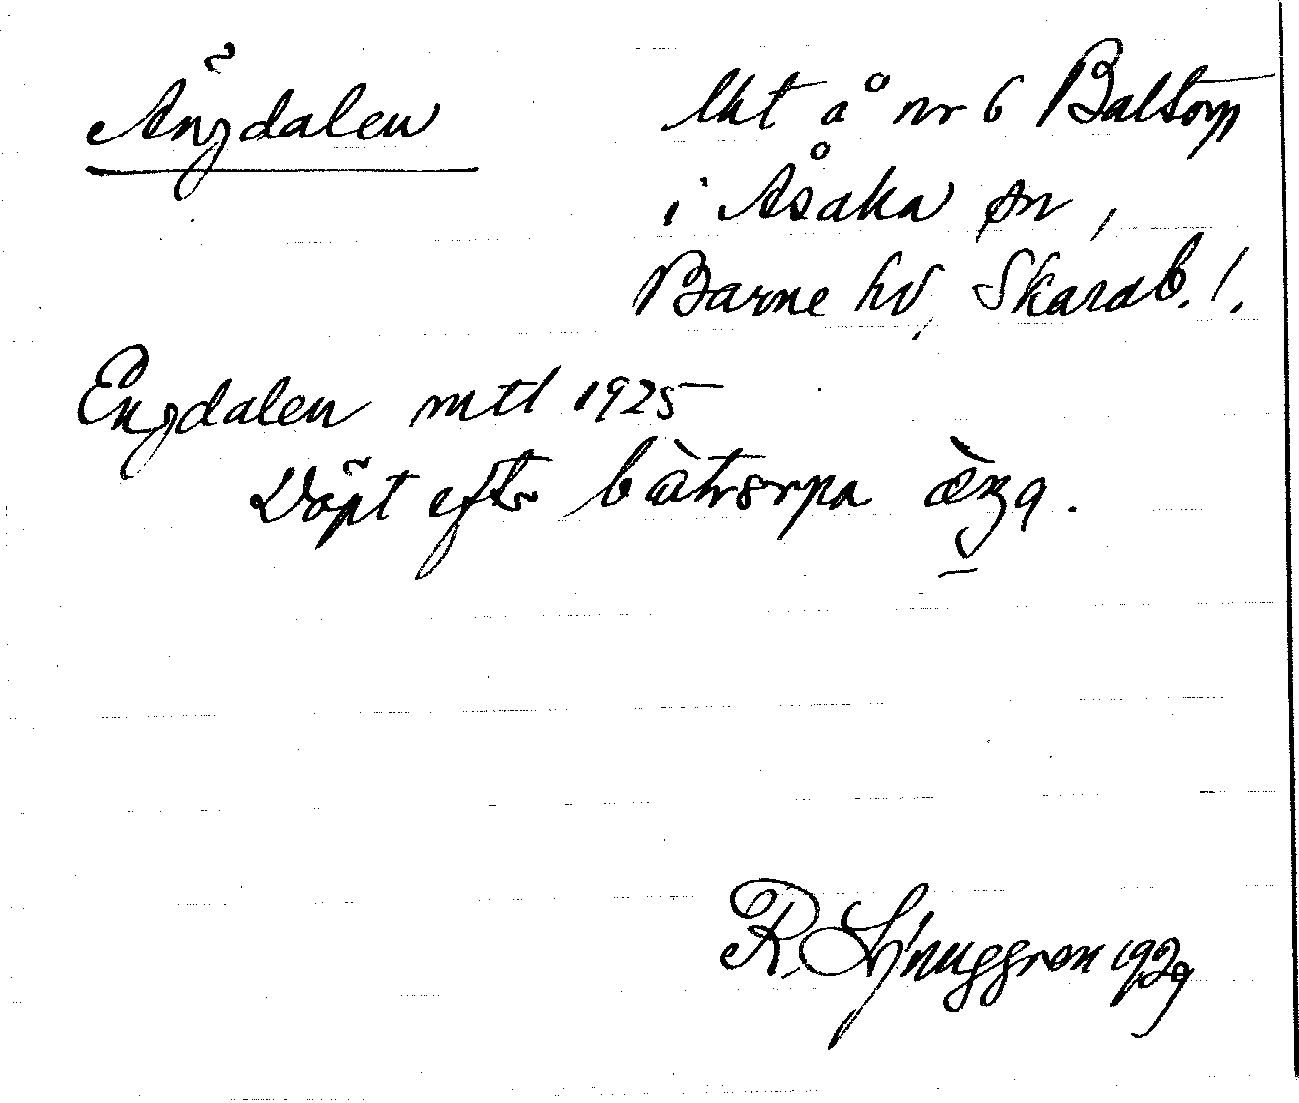 Ängdalen
lht å nr 6 Baltorp
i Åsaka sn,
Barne hd, Skarab. l.
Engdalen mtl 1925
Döpt eftr bàtrərpa æ̀ŋa.
R. Ljunggren 1929